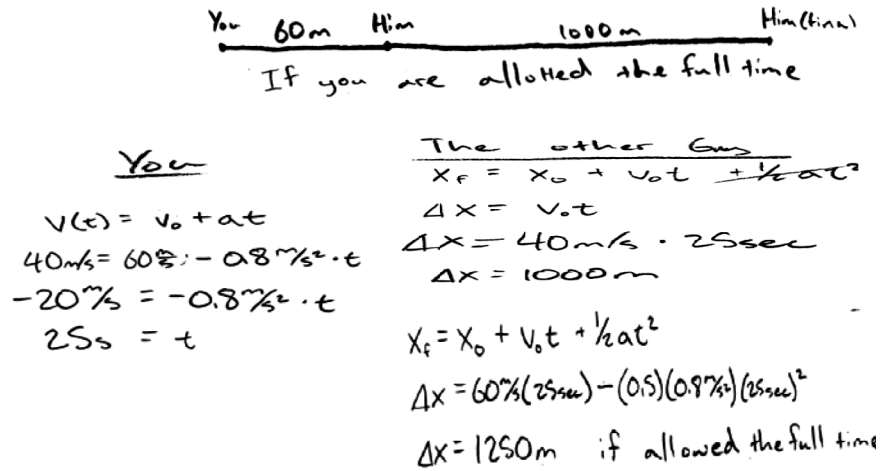 You 60m Him 1000m Him (final)
If you are allotted the full time
You
V(t) = v₀ + at
40m/s = 60m/s - 0.8m/s² · t
-20m/s = -0.8m/s² · t
25s = t
The other Guy
X_f = X₀ + V₀t + ½at²
ΔX = V₀t
ΔX = 40m/s · 25sec
ΔX = 1000m
X_f = X₀ + V₀t + ½at²
ΔX = 60m/s(25sec) - (0.5)(0.8m/s²)(25sec)²
ΔX = 1250m if allowed the full time